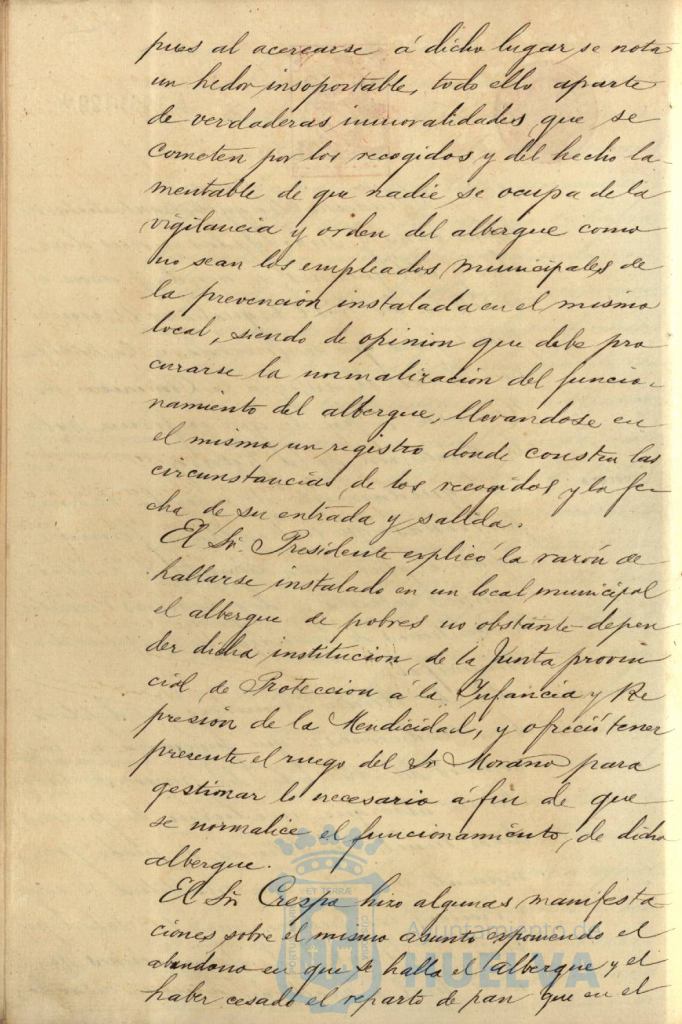 pues al acercarse á dicho lugar se nota
un hedor insoportable, todo ello aparte
de verdaderas inmoralidades que se
cometen por los recogidos y del hecho la-
mentable de que nadie se ocupa de la
vigilancia y orden del albergue como
no sean los empleados municipales de
la prevención instalada en el mismo
local, siendo de opinion que debe pro
curarse la normalizacion del funcio-
namiento del albergue, llevandose en
el mismo un registro donde consten las
circunstancias de los recogidos y la fe-
cha de su entrada y salida.
El Sr. Presidente explicó la razón de
hallarse instalado en un local municipal
el albergue de pobres no obstante depen
der dicha institucion de la Junta provin
cial de Proteccion á la Infancia y Re
presión de la Mendicidad, y ofreció tener
presente el ruego del Sr Morano para
gestionar lo necesario á fin de que
se normalice el funcionamiento de dicho
albergue.
El Sr. Crespo hizo algunas manifesta
ciones sobre el mismo asunto exponiendo el
abandono en que se halla el albergue y el
haber cesado el reparto de pan que en el
Ayuntamiento de
HUELVA